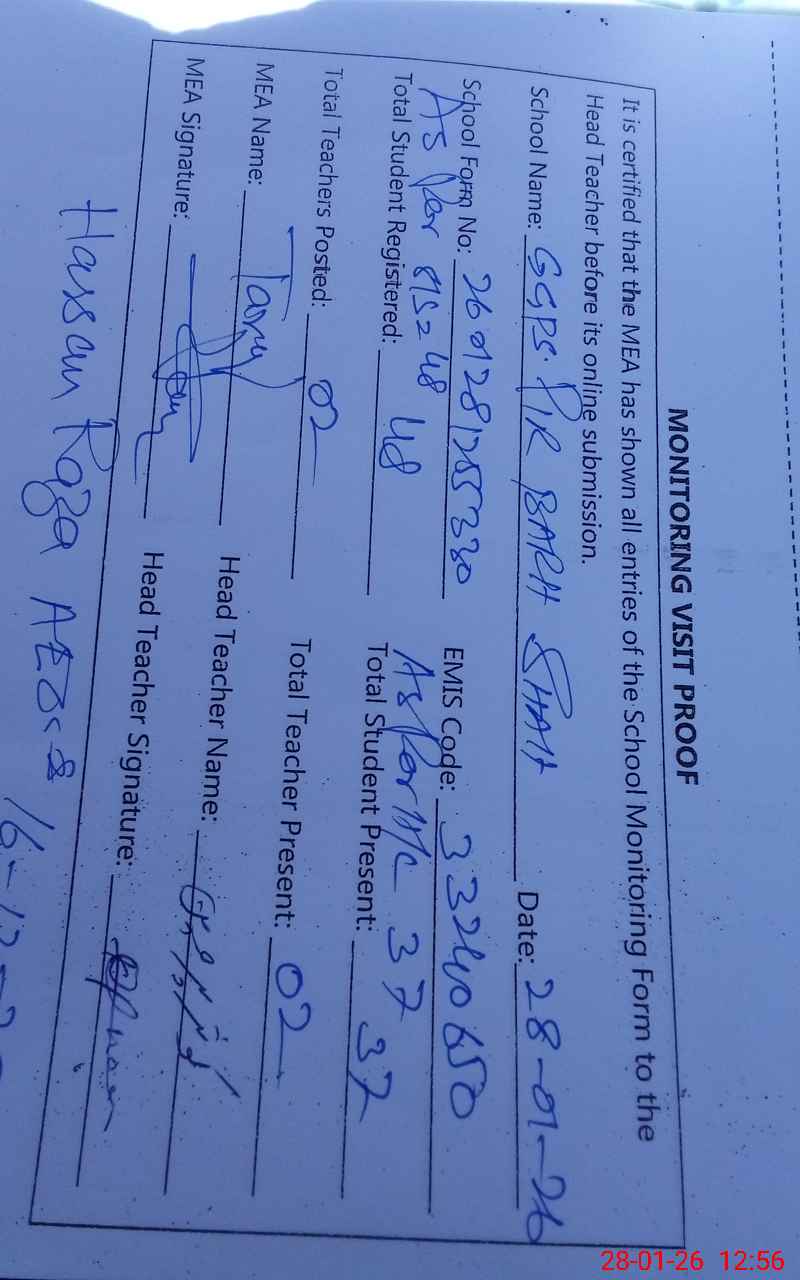 MONITORING VISIT PROOF
It is certified that the MEA has shown all entries of the School Monitoring Form to the
Head Teacher before its online submission.
School Name: GGPS. PIR BARH SHAH Date: 28-01-26
School Form No: EMIS Code: 33240650
As Per SIS = 48 As Per HC 37
Total Student Registered: 48 Total Student Present: 37
Total Teachers Posted: 02 Total Teacher Present: 02
MEA Name: Head Teacher Name:
MEA Signature: Head Teacher Signature:
Hassan Raza AEO
28-01-26 12:56